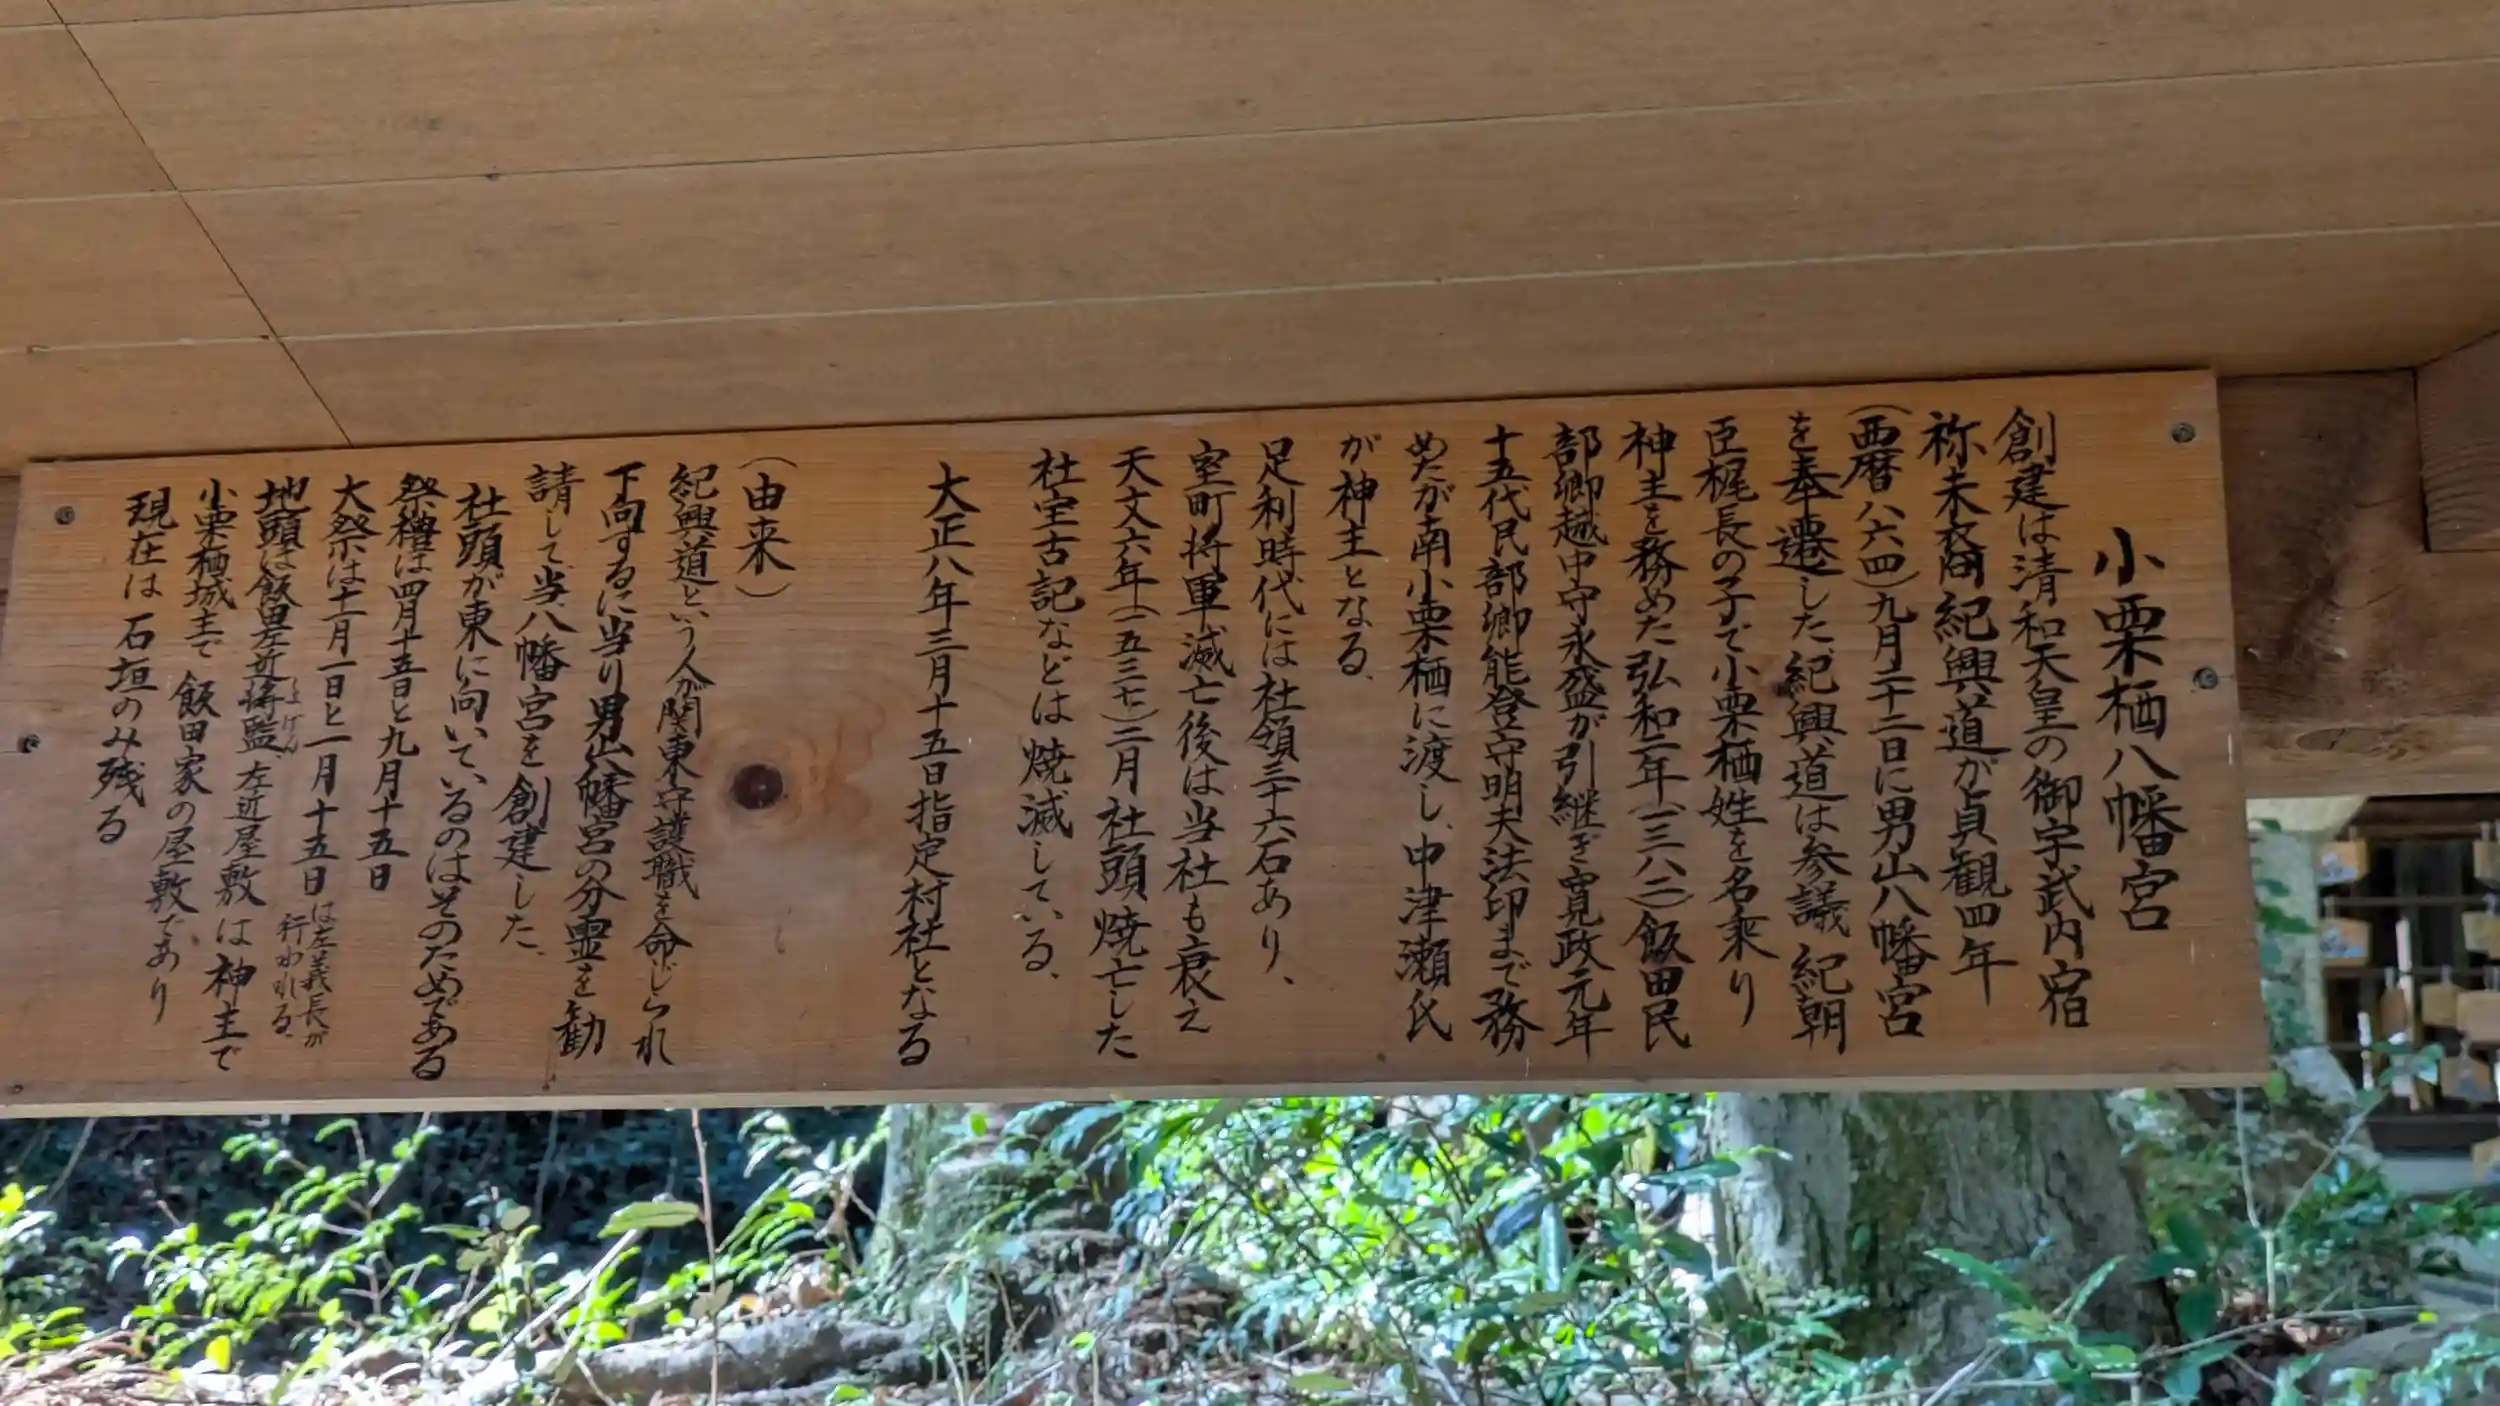 小栗栖八幡宮
創建は清和天皇の御宇武内宿
祢末裔紀興道が貞観四年
(西暦八六四)九月二十二日に男山八幡宮
を奉遷した、紀興道は参議紀朝
臣梶長の子で小栗栖姓を名乗り
神主を務めた弘和二年(一三八二)飯田民
部卿越中守永盛が引継ぎ寛政元年
十五代民部卿能登守明夫法印まで務
めたが南小栗栖に渡し、中津瀬氏
が神主となる、
足利時代には社領三十六石あり、
室町将軍滅亡後は当社も衰え
天文六年(一五三七)二月社頭焼亡した
社宝古記などは焼滅している、
大正八年三月十五日指定村社となる
(由来)
紀興道という人が関東守護職を命じられ
下向するに当り男山八幡宮の分霊を勧
請して、当八幡宮を創建した、
社頭が東に向いているのはそのためである
祭禮は四月十五日と九月十五日
大祭は十一月一日と一月十五日は左義長が行われる、
地頭は飯田左近将監、左近屋敷は神主で
しょげん
小栗栖城主で飯田家の屋敷であり
現在は石垣のみ残る